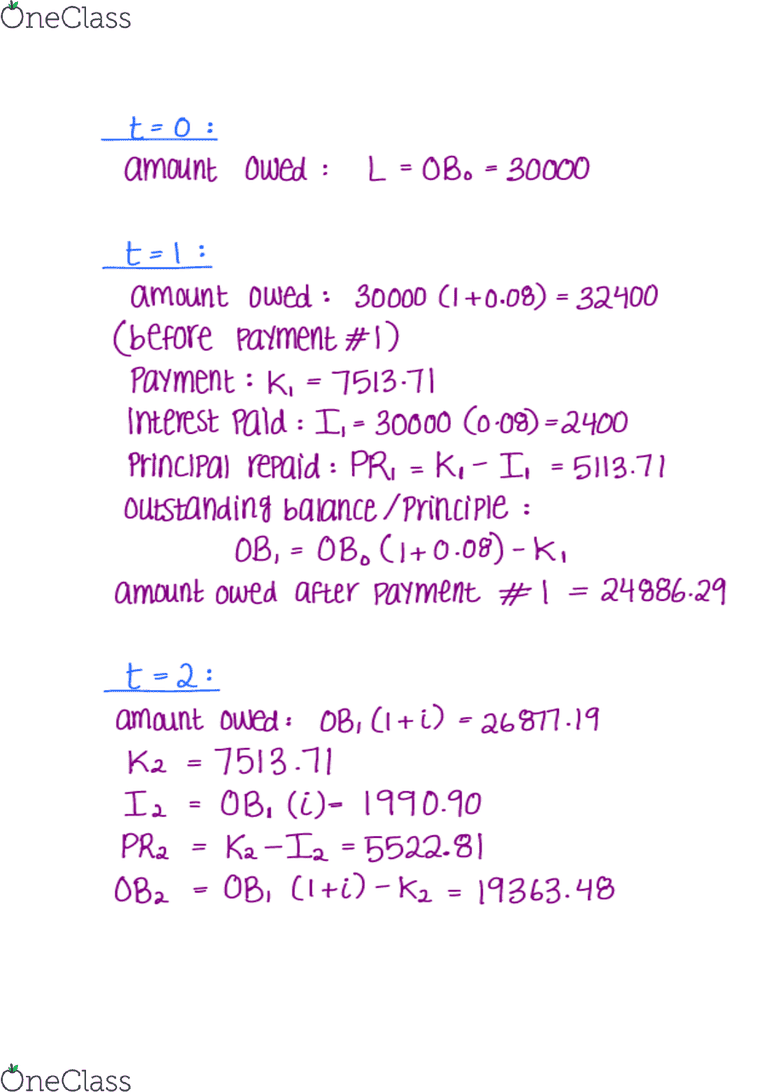 OneClass
t = 0 :
amount owed : L = OB₀ = 30000
t = 1 :
amount owed : 30000 (1+0.08) = 32400
(before payment #1)
Payment : K₁ = 7513.71
Interest paid : I₁ = 30000 (0.08) = 2400
Principal repaid : PR₁ = K₁ - I₁ = 5113.71
outstanding balance/principle :
OB₁ = OB₀ (1+0.08) - K₁
amount owed after payment #1 = 24886.29
t = 2 :
amount owed : OB₁ (1+i) = 26877.19
K₂ = 7513.71
I₂ = OB₁ (i)- 1990.90
PR₂ = K₂-I₂ = 5522.81
OB₂ = OB₁ (1+i) - K₂ = 19363.48
OneClass